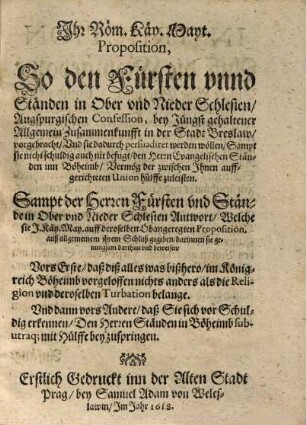 Ihr Röm. Käy. Mayt.
Proposition,
So den Fürsten vnnd
Ständen in Ober vnd Nieder Schlesien/
Augspurgischen Confession, bey Jüngst gehaltener
Allgemein Zusammenkunfft in der Stadt Breslaw/
vorgebracht/ Vnd sie dadurch persuadiret werden wöllen/ Sampt
sie nicht schuldig auch nit befügt/ den Herrn Evangelischen Stän-
den inn Böheimb/ Vermög der zwischen Ihnen auff-
gerichteten Union hülffe zuleisten.
Sampt der Herren Fürsten vnd Stän-
de in Ober vnd Nieder Schlesien Antwort/ Welche
sie J. Käy. May. auff deroselben Obangeregten Proposition,
auß allgemeinem ihrem Schluß geben/ darinnen sie ge-
nungsam darthun vnd beweisen/
Vors Erste/ daß diß alles was bißhero/ im König-
reich Böheimb vorgeloffen nichts anders als die Reli-
gion vnd deroselben Turbation belange.
Vnd dann vors Andere/ daß Sie sich vor Schul-
dig erkennen/ Den Herren Ständen in Böheimb sub-
utraq; mit Hülffe beyzuspringen.
Erstlich Gedruckt inn der Alten Stadt
Prag/ bey Samuel Adam von Weles-
lawin/ Im Jahr 1618.